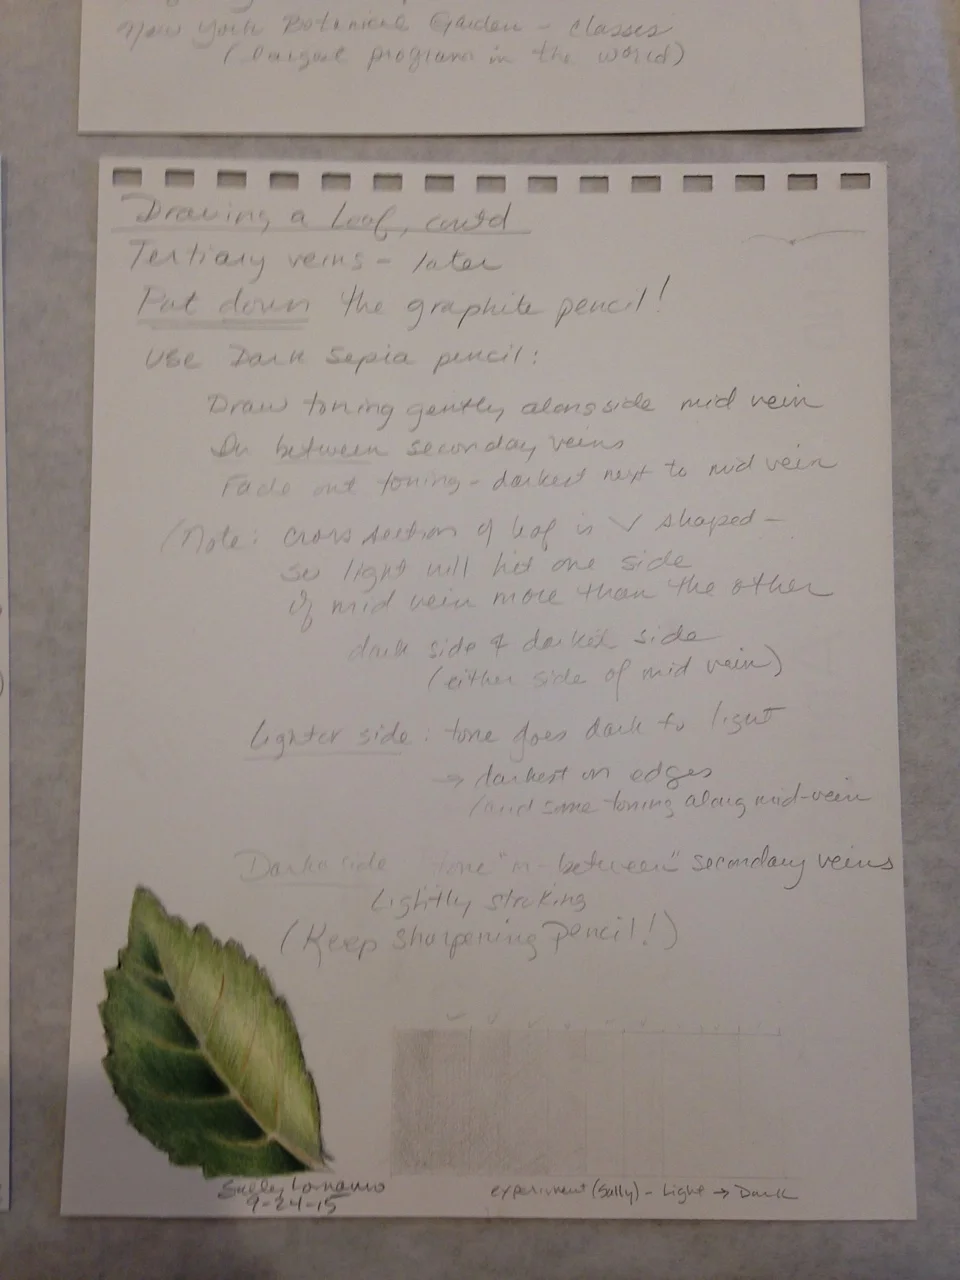 New York Botanical Garden - classes
(largest programs in the world)
Drawing a Leaf, cont'd
Tertiary veins - later
Put down the graphite pencil!
Use Dark Sepia pencil:
Draw toning gently alongside mid vein
In between secondary veins
Fade out toning - darkest next to mid vein
(Note: cross section of leaf is V shaped -
so light will hit one side
of mid vein more than the other
dark side & darker side
(either side of mid vein)
Lighter side: tone goes dark to light
→ darkest on edges
(and some toning along mid-vein
Darker side tone "in-between" secondary veins
Lightly stroking
(Keep sharpening pencil!)
Sally
9-24-15
experiment (Sally) - Light → Dark